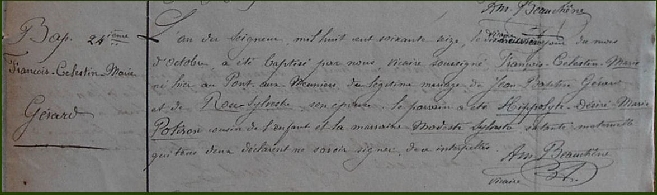 Am Beauchêne
Bap. 24ème
François-Celestin-Marie
Gérard
L'an du Seigneur, mil huit cent soixante seize, le dixneuvième jour du mois
d'Octobre a été baptisé par nous vicaire soussigné François-Celestin-Marie
né hier au Pont aux Meuniers du légitime mariage de Jean Baptiste Gérard
et de Sylvestre son épouse. Le parrain a été Hippolyte-Désiré-Marie
Potiron cousin de l'enfant et la marraine Modeste Sylvestre tante maternelle
qui tous deux déclarent ne savoir signer, de ce interpellés.
Am Beauchêne
vicaire